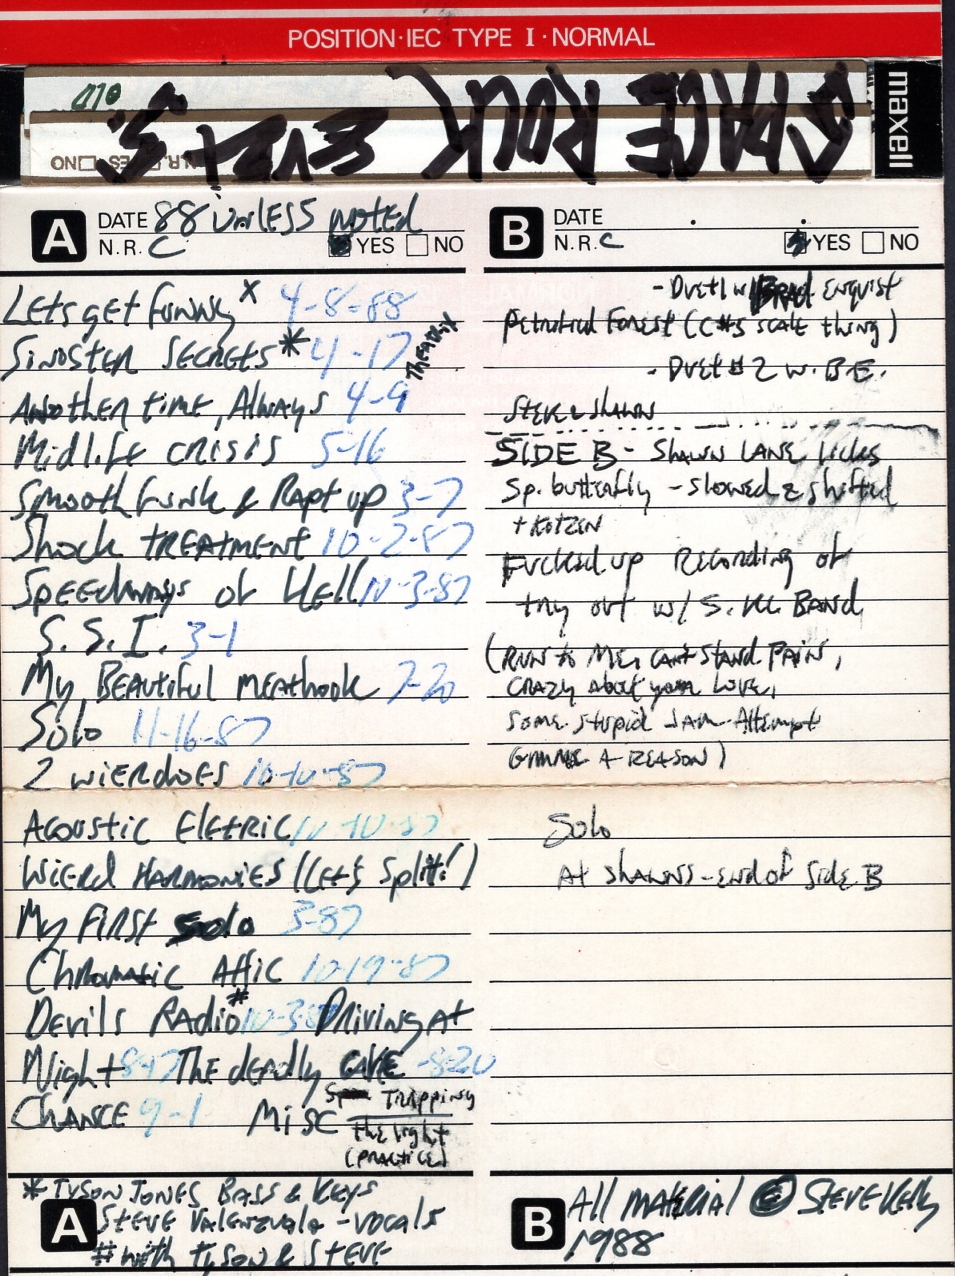 POSITION·IEC TYPE I·NORMAL
maxell
SPACE ROCK
A
DATE 88 UNLESS NOTED
N.R. C YES NO
Lets get funny x 4-8-88
SINISTER SECRETS* 4-17
ANOTHER time, Always 4-9
Midlife crisis 5-16
Smooth funk & Rapt up 3-7
Shock TREATMENT 10-2-87
SPEEDWAYS of HELL 10-3-87
S.S.I. 3-1
My BEAUTIFUL MEATHOOK 7-20
Solo 11-16-87
2 WIERDOES 10-10-87
ACOUSTIC ELETRIC 11-10-87
WIERD HARMONIES (LET'S Split!)
My First Solo 3-87
Chromatic Attic 10-19-87
DEVILS RADIO# 10-3-87 DRIVING AT
Night The deadly CAVE -8-20
CHANCE 9-1 MISC TRAPPING
THE light
(PRACTICE)
A
* TYSON JONES BASS & KEYS
STEVE VALENZUALA - VOCALS
# with TYSON & STEVE
B
DATE
N.R. C YES NO
- DUET 1 w/ BRAD ENQUIST
PETRIFIED FOREST (C#5 scale thing)
- DUET #2 W. B.E.
STEVE & SHAWN
SIDE B - SHAWN LANE licks
Sp. butterfly - slowed & shifted
+ KOTZEN
Fucked up Recording of
try out w/ S. BAND
(RUN to ME, CAN'T STAND PAIN,
CRAZY About your Love,
Some stupid JAM Attempt
GIMME A REASON)
Solo
At SHAWNS - end of Side B
B
All MATERIAL © STEVE KELLY
1988